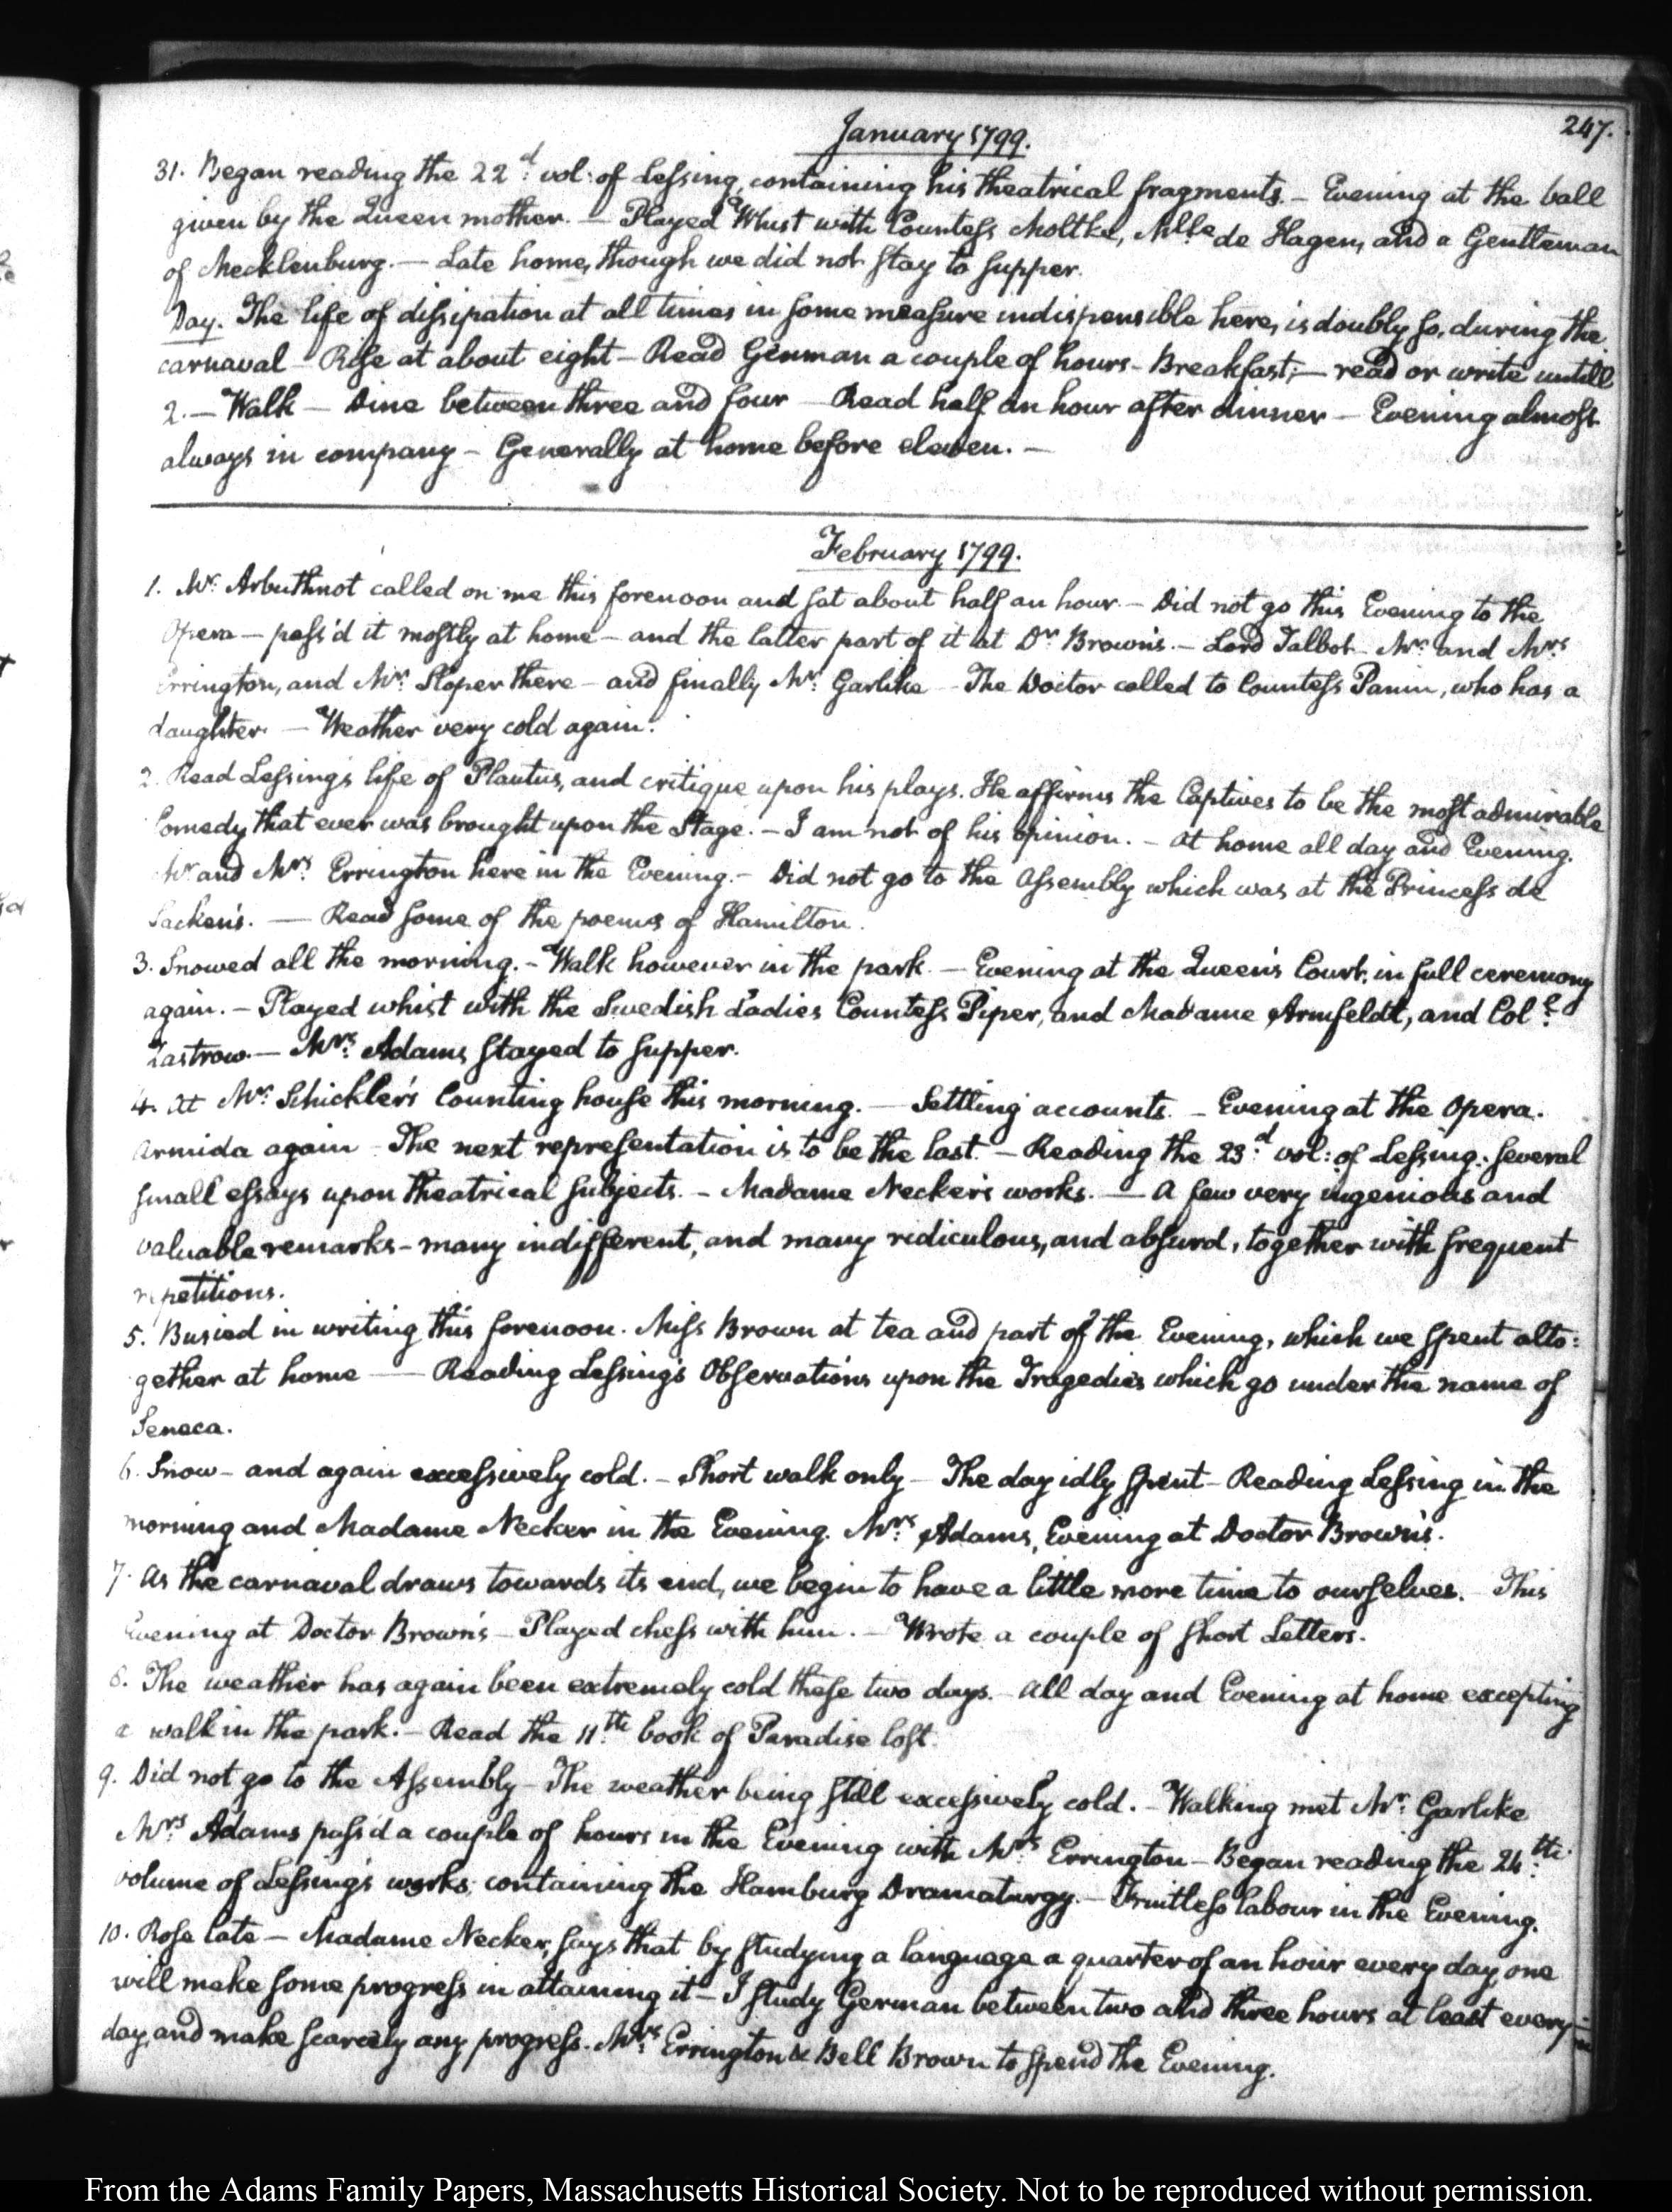 247.
January 1799.
31. Began reading the 22d. vol: of Lessing, containing his theatrical fragments. — Evening at the ball
given by the Queen mother. — Played Whist with Countess Moltke, Mlle de Hagen, and a Gentleman
of Mecklenburg. — Late home, though we did not stay to supper.
Day. The life of dissipation at all times in some measure indispensible here, is doubly so, during the
carnaval — Rise at about eight — Read German a couple of hours — Breakfast; — read or write untill
2. — Walk — Dine between three and four — Read half an hour after dinner — Evening almost
always in company — Generally at home before eleven. —
February 1799.
1. Mr. Arbuthnot called on me this forenoon and sat about half an hour. — Did not go this Evening to the
Opera — pass'd it mostly at home — and the latter part of it at Dr. Brown's. — Lord Talbot — Mr. and Mrs.
Errington, and Mr. Sloper there — and finally Mr. Garlike — The Doctor called to Countess Panin, who has a
daughter — Weather very cold again.
2. Read Lessing's life of Plautus, and critique upon his plays. He affirms the Captives to be the most admirable
Comedy that ever was brought upon the Stage. — I am not of his opinion. — At home all day and Evening.
Mr. and Mrs. Errington here in the Evening. — Did not go to the Assembly which was at the Princess de
Sacken's. — Read some of the poems of Hamilton.
3. Snowed all the morning. — Walk however in the park. — Evening at the Queen's Court, in full ceremony
again. — Played whist with the Swedish Ladies Countess Piper, and Madame Armfeldt, and Coll.
Zastrow. — Mrs. Adams stayed to supper.
4. At Mr. Schickler's Counting house this morning. — Settling accounts. — Evening at the Opera.
Armida again — The next representation is to be the last. — Reading the 23d. vol: of Lessing: several
small essays upon theatrical subjects. — Madame Necker's works. — A few very ingenious and
valuable remarks — many indifferent, and many ridiculous, and absurd, together with frequent
repetitions.
5. Busied in writing this forenoon. Miss Brown at tea and part of the Evening, which we spent alto:
gether at home — Reading Lessing's Observations upon the Tragedies which go under the name of
Seneca.
6. Snow — and again excessively cold. — Short walk only — The day idly spent — Reading Lessing in the
morning and Madame Necker in the Evening. Mrs. Adams, Evening at Doctor Brown's.
7. As the carnaval draws towards its end, we begin to have a little more time to ourselves. — This
Evening at Doctor Brown's — Played chess with him. — Wrote a couple of short Letters.
8. The weather has again been extremely cold these two days. — All day and Evening at home excepting
a walk in the park. — Read the 11th. book of Paradise lost.
9. Did not go to the Assembly — The weather being still excessively cold. — Walking met Mr. Garlike
Mrs. Adams pass'd a couple of hours in the Evening with Mrs. Errington — Began reading the 24th.
volume of Lessing's works, containing the Hamburg Dramaturgy. — Fruitless labour in the Evening.
10. Rose late — Madame Necker, says that by studying a language a quarter of an hour every day, one
will make some progress in attaining it — I study German between two and three hours at least every
day, and make scarcely any progress. Mrs. Errington & Bell Brown to spend the Evening.
From the Adams Family Papers, Massachusetts Historical Society. Not to be reproduced without permission.